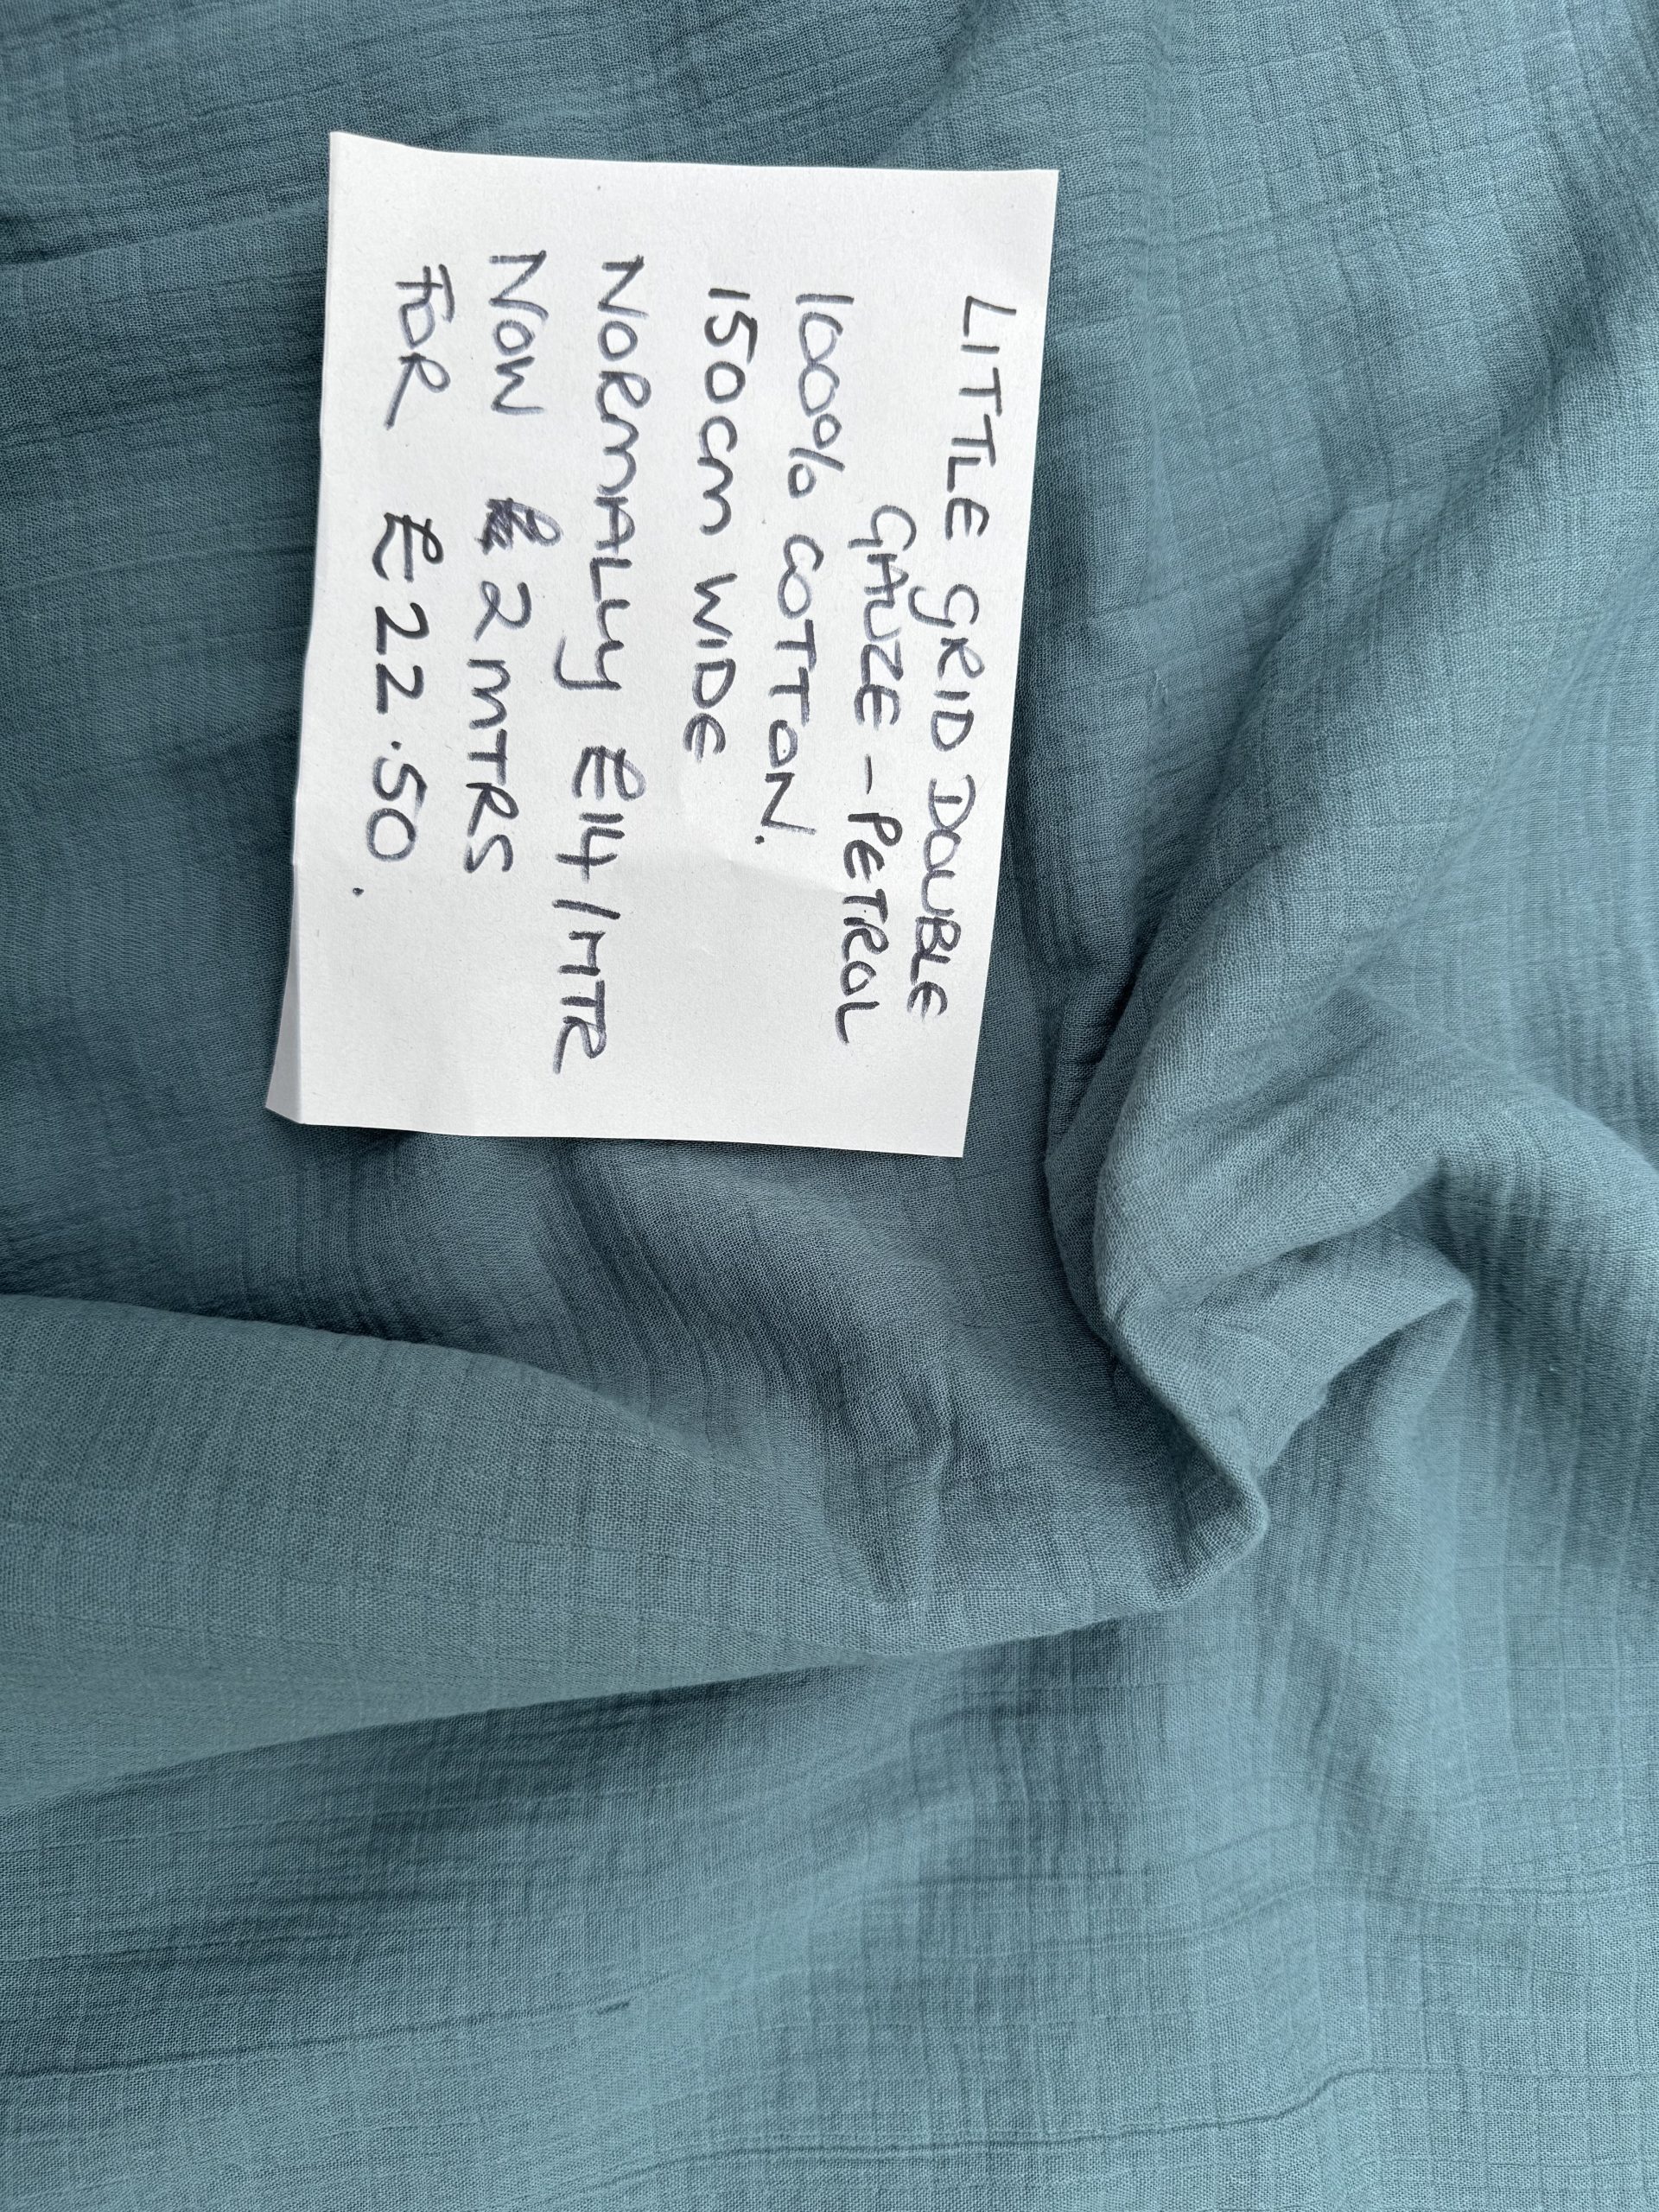 LITTLE GRID DOUBLE
GAUZE - PETROL
100% COTTON.
150cm WIDE
NORMALLY £14/MTR
NOW 2 MTRS
FOR £22.50.